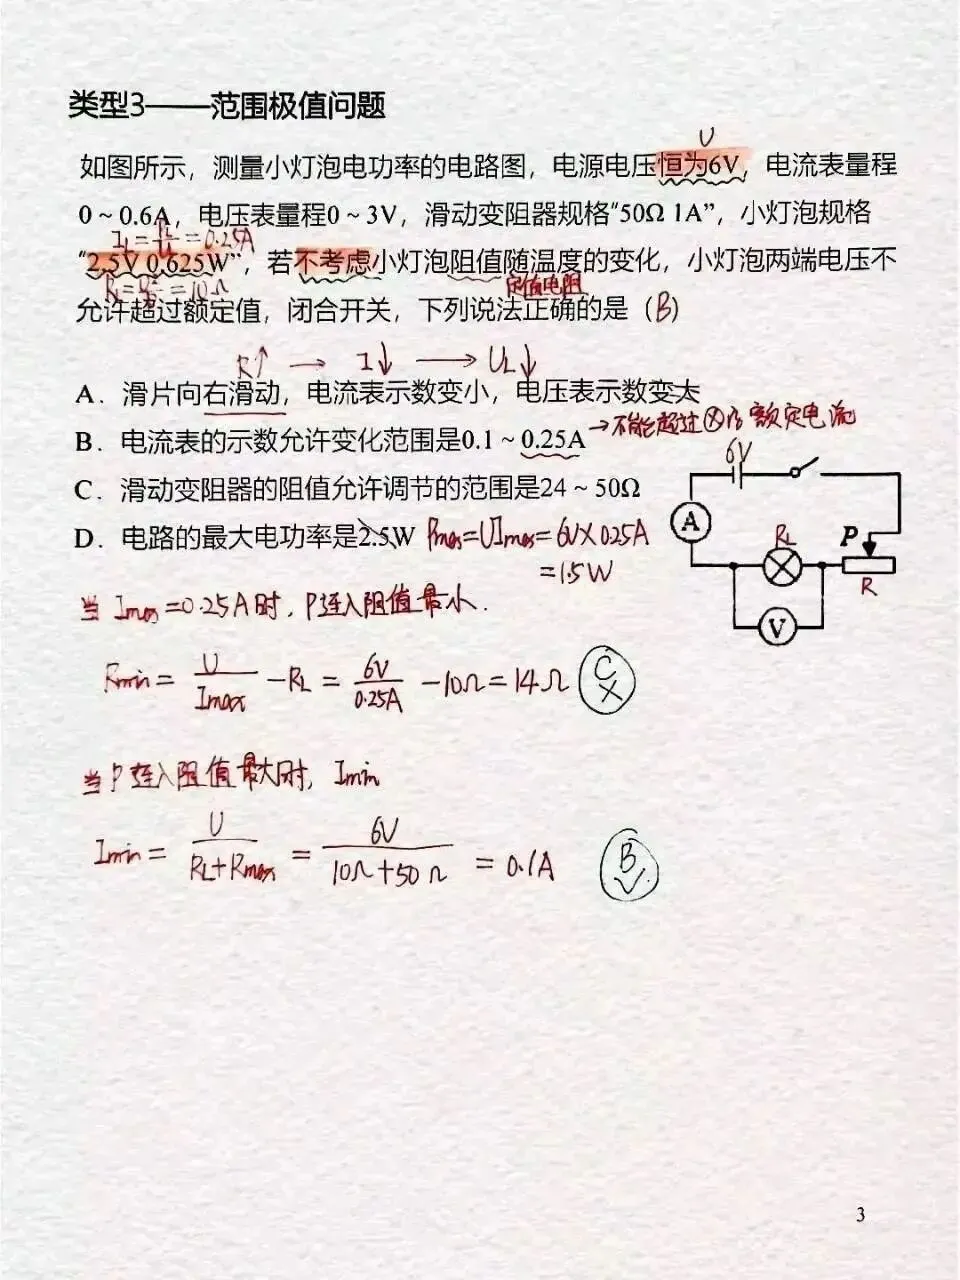 类型3——范围极值问题
U
如图所示，测量小灯泡电功率的电路图，电源电压恒为6V，电流表量程
0～0.6A，电压表量程0～3V，滑动变阻器规格“50Ω 1A”，小灯泡规格
=0.25A
“2.5V 0.625W”，若不考虑小灯泡阻值随温度的变化，小灯泡两端电压不
=10Ω
定值电阻
允许超过额定值，闭合开关，下列说法正确的是（B）
R↑ → I↓ → UL↓
A．滑片向右滑动，电流表示数变小，电压表示数变大
B．电流表的示数允许变化范围是0.1～0.25A →不能超过⊗的额定电流
C．滑动变阻器的阻值允许调节的范围是24～50Ω
D．电路的最大电功率是2.5W Pmax=UImax=6V×0.25A
=1.5W
6V
A
RL
P
R
V
当 Imax=0.25A时，P连入阻值最小.
Rmin= U/Imax -RL= 6V/0.25A -10Ω=14Ω C×
当P连入阻值最大时，Imin
Imin= U/RL+Rmax = 6V/10Ω+50Ω =0.1A B✓
3